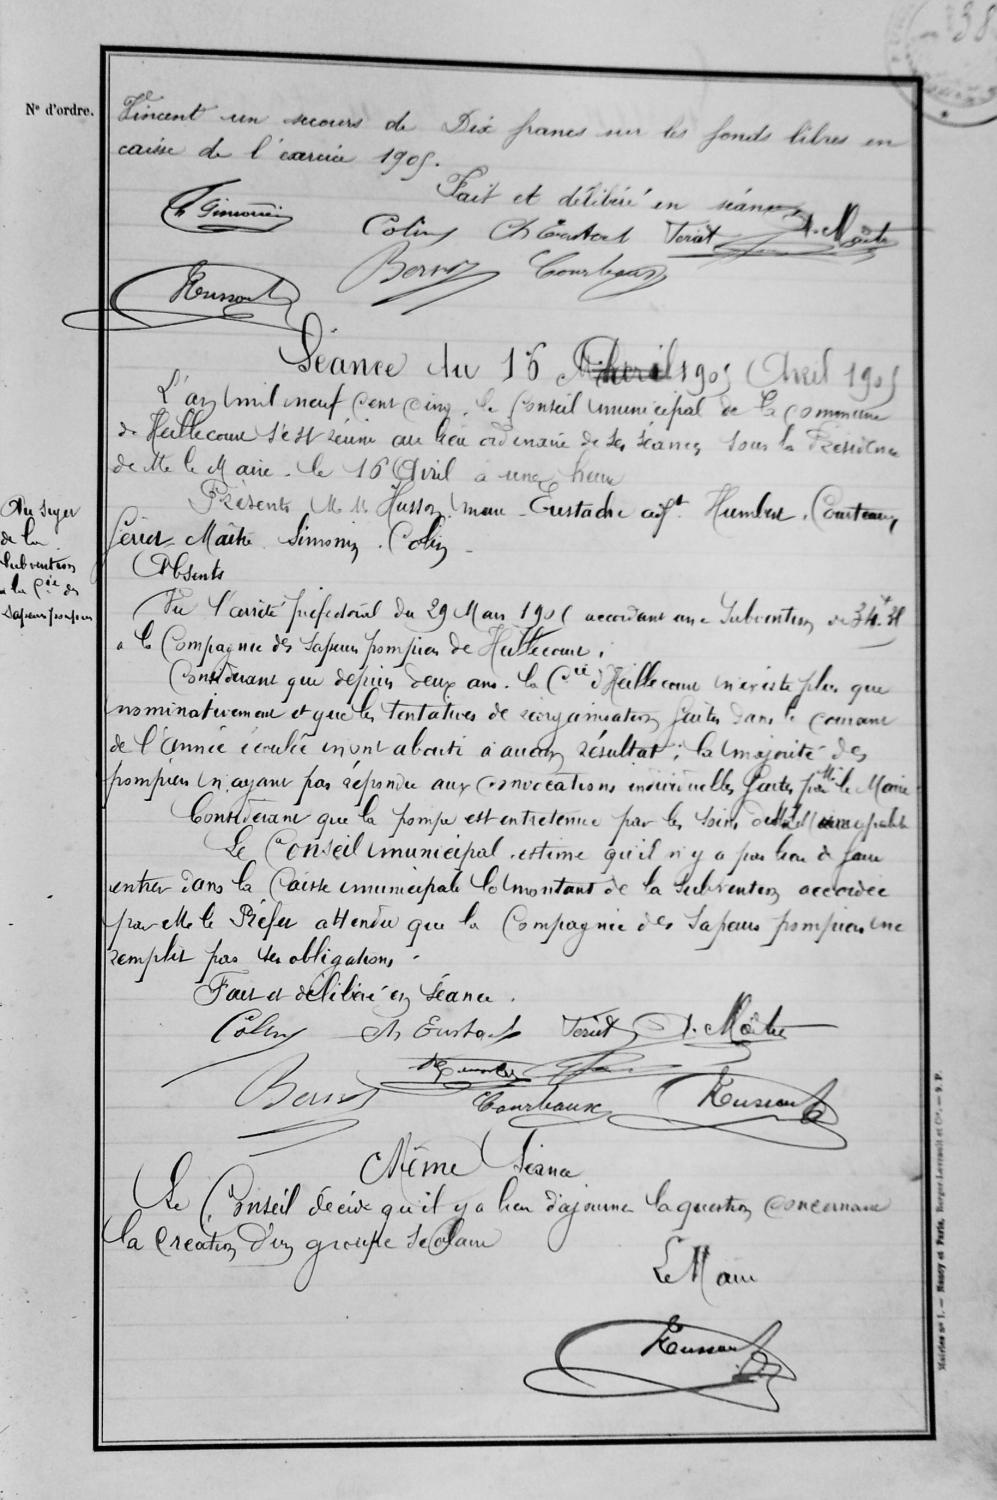 38
N° d'ordre.
Vincent un secours de Dix francs sur les fonds libres en
caisse de l'exercice 1905.
Fait et délibéré en séance
Colin Ch Eustache Feriet A. Maître
Courteaux
Husson
Séance du 16 Avril 1905 Avril 1905
L'an mil neuf cent cinq, le Conseil municipal de la commune
de Heillecourt s'est réuni au lieu ordinaire de ses séances sous la Présidence
de Mr le Maire. le 16 Avril à une heure
Présents M M Husson, maire Eustache adjt Humbert, Courteaux,
Fériet Maître Simonin. Colin
Absents
Au sujet
de la
Subvention
à la Cie des
Sapeurs pompiers
Vu l'arrêté préfectoral du 29 Mars 1905 accordant une Subvention de 34f.31
à la Compagnie des Sapeurs pompiers de Heillecourt;
Considérant que depuis deux ans. la Cie d'Heillecourt n'existe plus que
nominativement et que les tentatives de réorganisation faites dans le courant
de l'Année écoulée n'ont abouti à aucun résultat; la majorité des
pompiers n'ayant pas répondu aux convocations individuelles faites par Mr le Maire
Considérant que la pompe est entretenue par les soins de
Le Conseil municipal estime qu'il n'y a pas lieu de faire
entrer dans la Caisse municipale le montant de la Subvention accordée
par Mr le Préfet attendu que la Compagnie des Sapeurs pompiers ne
remplit pas ses obligations.
Fait et délibéré en Séance.
Colin Ch Eustache Feriet A. Maître
Courteaux Husson
Même Séance
Le Conseil décide qu'il y a lieu d'ajourner la question concernant
la création d'un groupe scolaire
Le Maire
Husson
Mairies n° 1. — Nancy et Paris, Berger-Levrault et Cie. — 9. P.